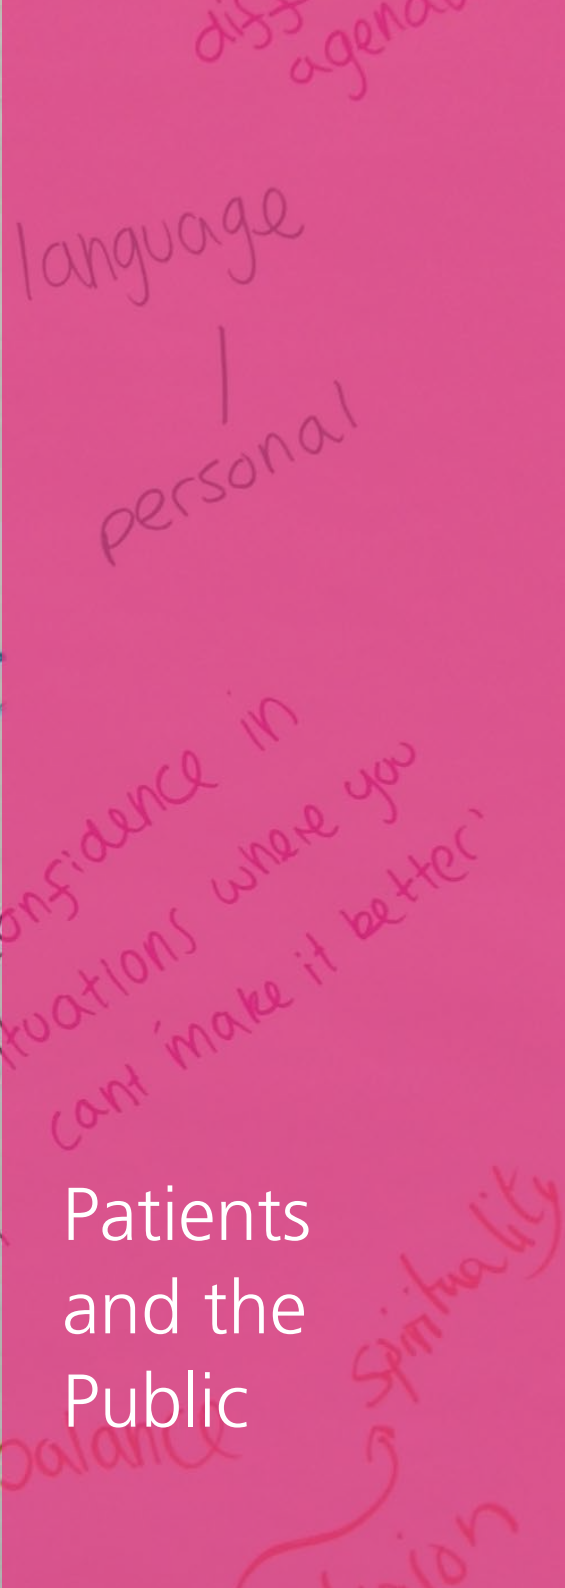 agenda
language
personal
confidence in
situations where you
cant 'make it better'
Patients
and the
Public
spirituality
balance